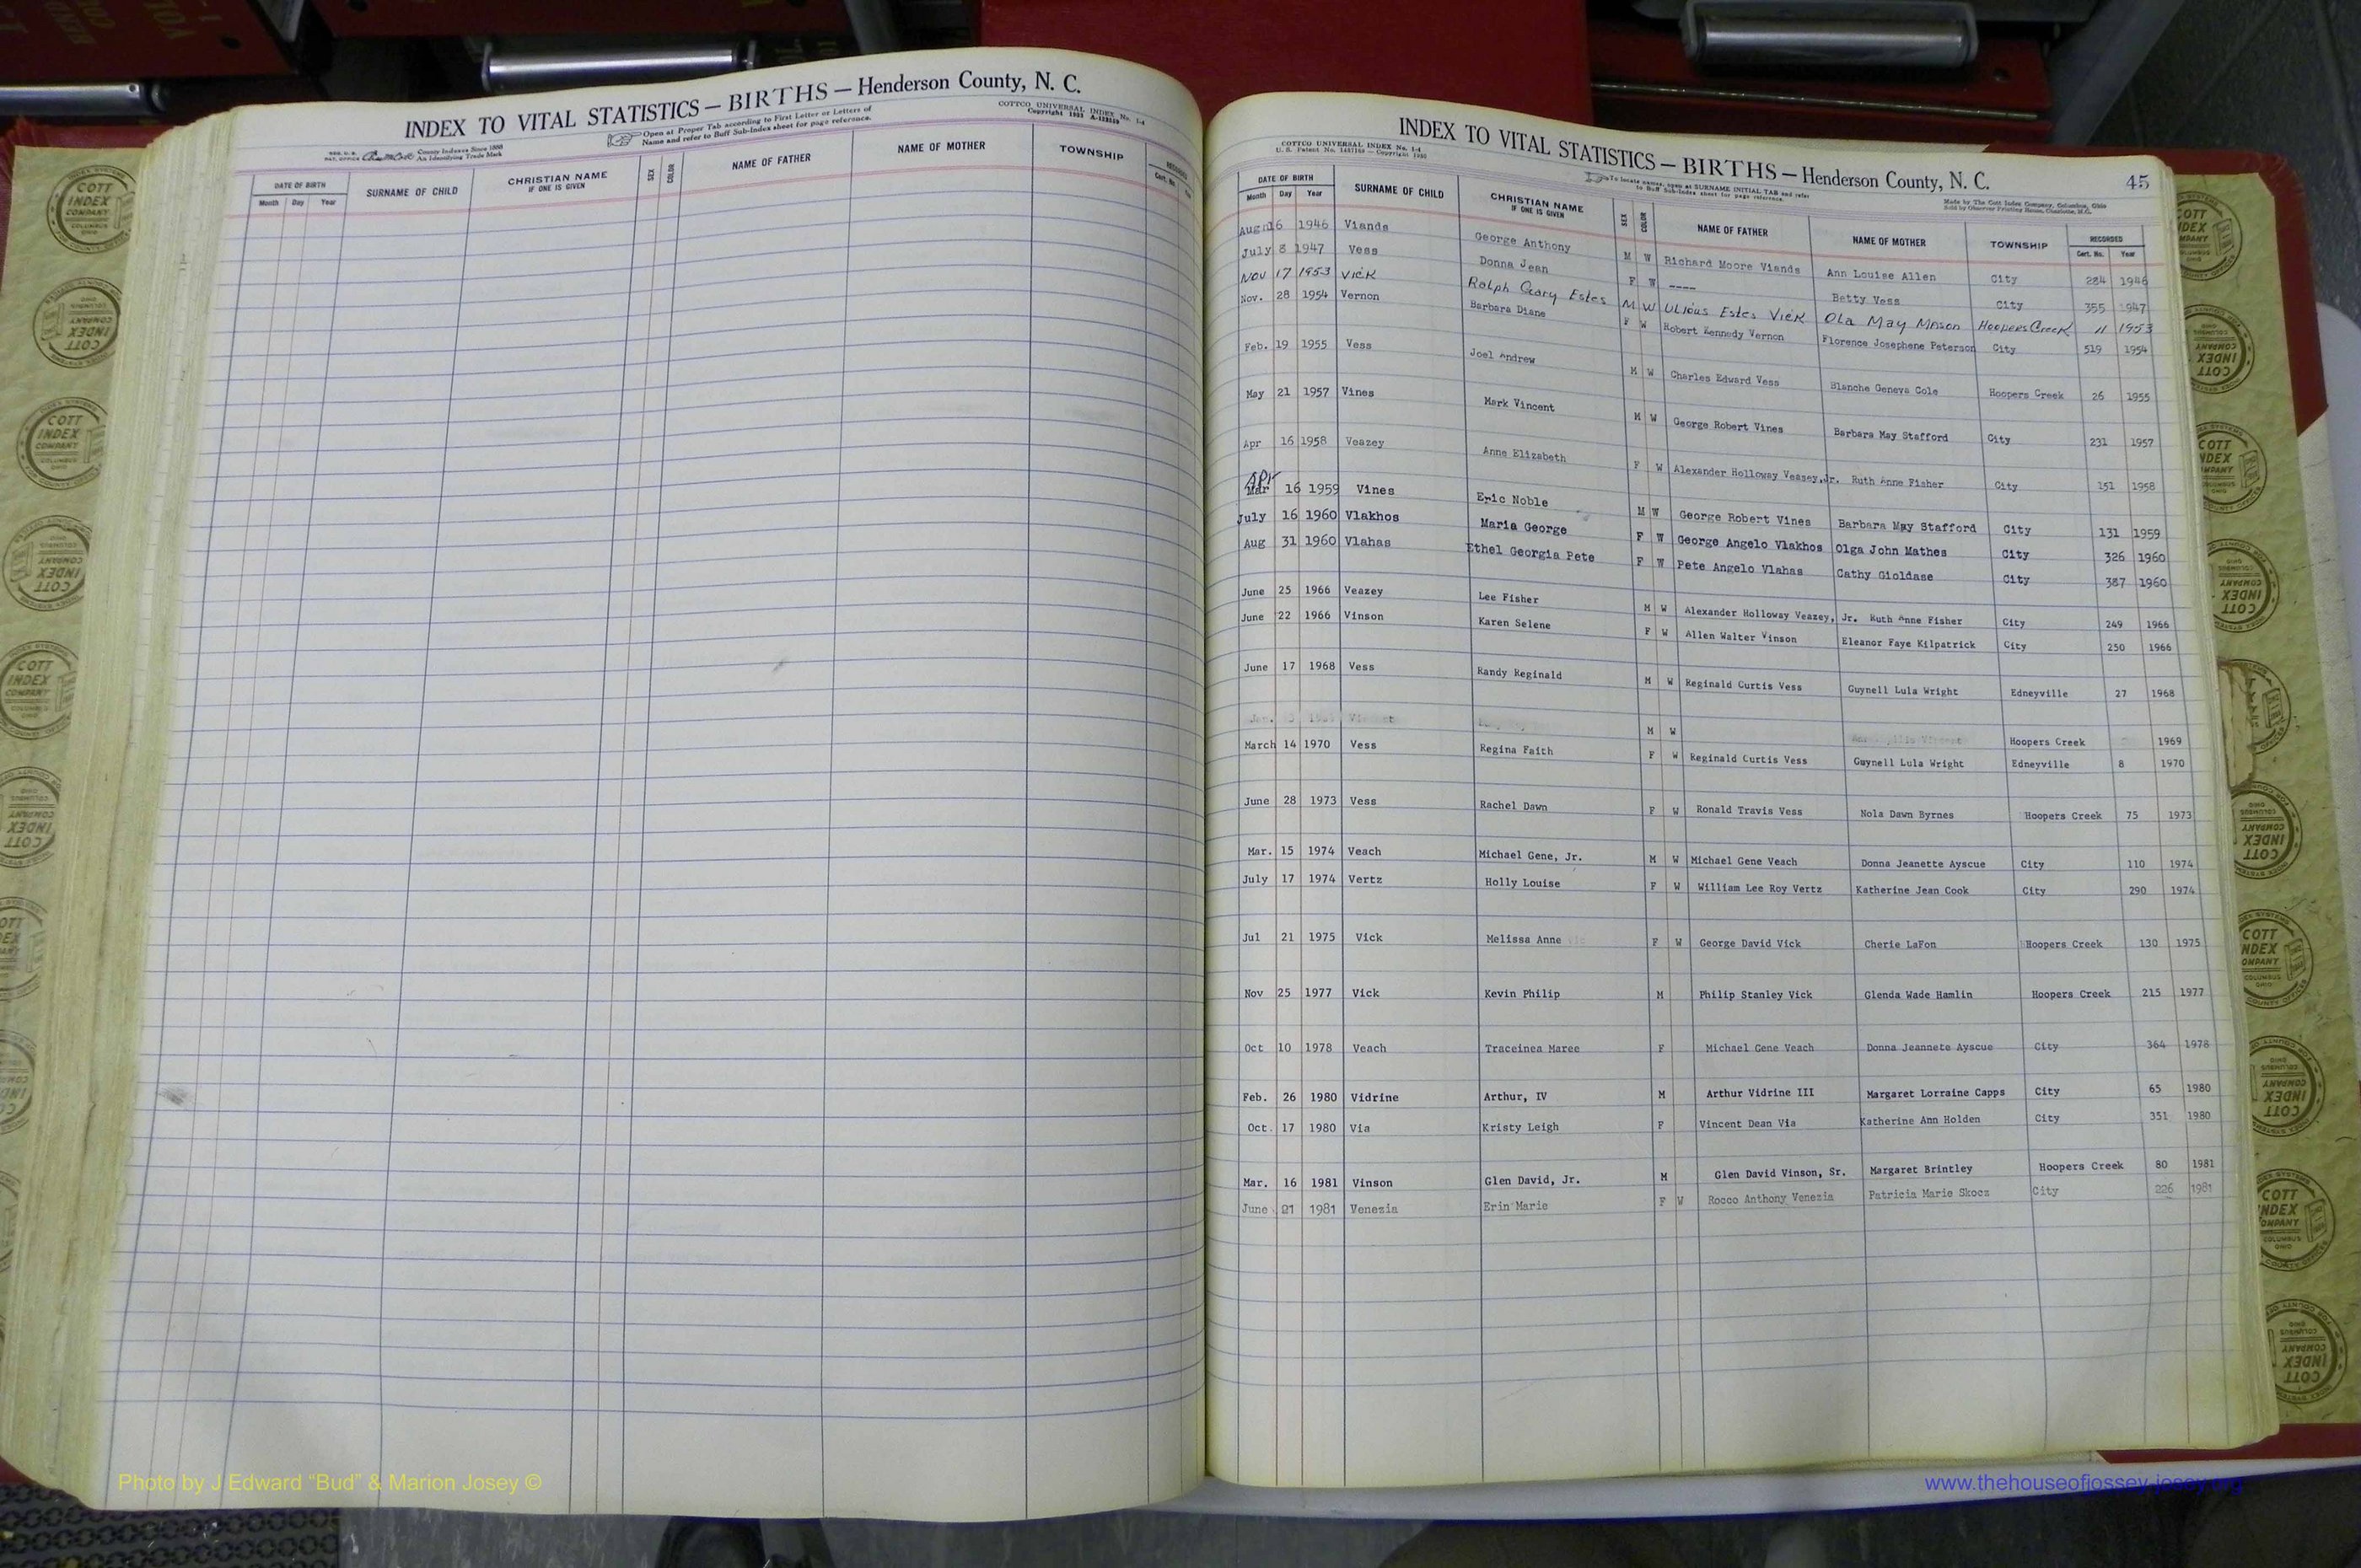 INDEX TO VITAL STATISTICS — BIRTHS — Henderson County, N. C.
COTTCO UNIVERSAL INDEX No. 1-4
Open at Proper Tab according to First Letter or Letters of
Name and refer to Buff Sub-Index sheet for page reference.
County Indexes Since 1888
An Identifying Trade Mark
DATE OF BIRTH SURNAME OF CHILD CHRISTIAN NAME IF ONE IS GIVEN SEX COLOR NAME OF FATHER NAME OF MOTHER TOWNSHIP
Month Day Year
INDEX TO VITAL STATISTICS — BIRTHS — Henderson County, N. C. 45
COTTCO UNIVERSAL INDEX No. 1-4
To locate names, open at SURNAME INITIAL TAB and refer
to Buff Sub-Index sheet for page reference.
Made by The Cott Index Company, Columbus, Ohio
Sold by Observer Printing House, Charlotte, N.C.
DATE OF BIRTH SURNAME OF CHILD CHRISTIAN NAME IF ONE IS GIVEN SEX COLOR NAME OF FATHER NAME OF MOTHER TOWNSHIP RECORDED
Month Day Year Cert. No. Year
Aug 16 1946 Viands George Anthony M W Richard Moore Viands Ann Louise Allen City 284 1946
July 8 1947 Vess Donna Jean F W ---- Betty Vess City 355 1947
Nov 17 1953 Vick Ralph Geary Estes M W Ulious Estes Vick Ola May Mason Hoopers Creek 11 1953
Nov. 28 1954 Vernon Barbara Diane F W Robert Kennedy Vernon Florence Josephene Peterson City 519 1954
Feb. 19 1955 Vess Joel Andrew M W Charles Edward Vess Blanche Geneva Cole Hoopers Creek 26 1955
May 21 1957 Vines Mark Vincent M W George Robert Vines Barbara May Stafford City 231 1957
Apr 16 1958 Veazey Anne Elizabeth F W Alexander Holloway Veasey,Jr. Ruth Anne Fisher City 151 1958
Apr
Mar 16 1959 Vines Eric Noble M W George Robert Vines Barbara May Stafford City 131 1959
July 16 1960 Vlakhos Maria George F W George Angelo Vlakhos Olga John Mathes City 326 1960
Aug 31 1960 Vlahas Ethel Georgia Pete F W Pete Angelo Vlahas Cathy Gioldase City 387 1960
June 25 1966 Veazey Lee Fisher M W Alexander Holloway Veazey, Jr. Ruth Anne Fisher City 249 1966
June 22 1966 Vinson Karen Selene F W Allen Walter Vinson Eleanor Faye Kilpatrick City 250 1966
June 17 1968 Vess Randy Reginald M W Reginald Curtis Vess Guynell Lula Wright Edneyville 27 1968
M W Hoopers Creek 1969
March 14 1970 Vess Regina Faith F W Reginald Curtis Vess Guynell Lula Wright Edneyville 8 1970
June 28 1973 Vess Rachel Dawn F W Ronald Travis Vess Nola Dawn Byrnes Hoopers Creek 75 1973
Mar. 15 1974 Veach Michael Gene, Jr. M W Michael Gene Veach Donna Jeanette Ayscue City 110 1974
July 17 1974 Vertz Holly Louise F W William Lee Roy Vertz Katherine Jean Cook City 290 1974
Jul 21 1975 Vick Melissa Anne F W George David Vick Cherie LaFon Hoopers Creek 130 1975
Nov 25 1977 Vick Kevin Philip M Philip Stanley Vick Glenda Wade Hamlin Hoopers Creek 215 1977
Oct 10 1978 Veach Traceinea Maree F Michael Gene Veach Donna Jeannete Ayscue City 364 1978
Feb. 26 1980 Vidrine Arthur, IV M Arthur Vidrine III Margaret Lorraine Capps City 65 1980
Oct. 17 1980 Via Kristy Leigh F Vincent Dean Via Katherine Ann Holden City 351 1980
Mar. 16 1981 Vinson Glen David, Jr. M Glen David Vinson, Sr. Margaret Brintley Hoopers Creek 80 1981
June 21 1981 Venezia Erin Marie F W Rocco Anthony Venezia Patricia Marie Skocz City 226 1981
Photo by J Edward “Bud” & Marion Josey ©
www.thehouseofjossey-josey.org